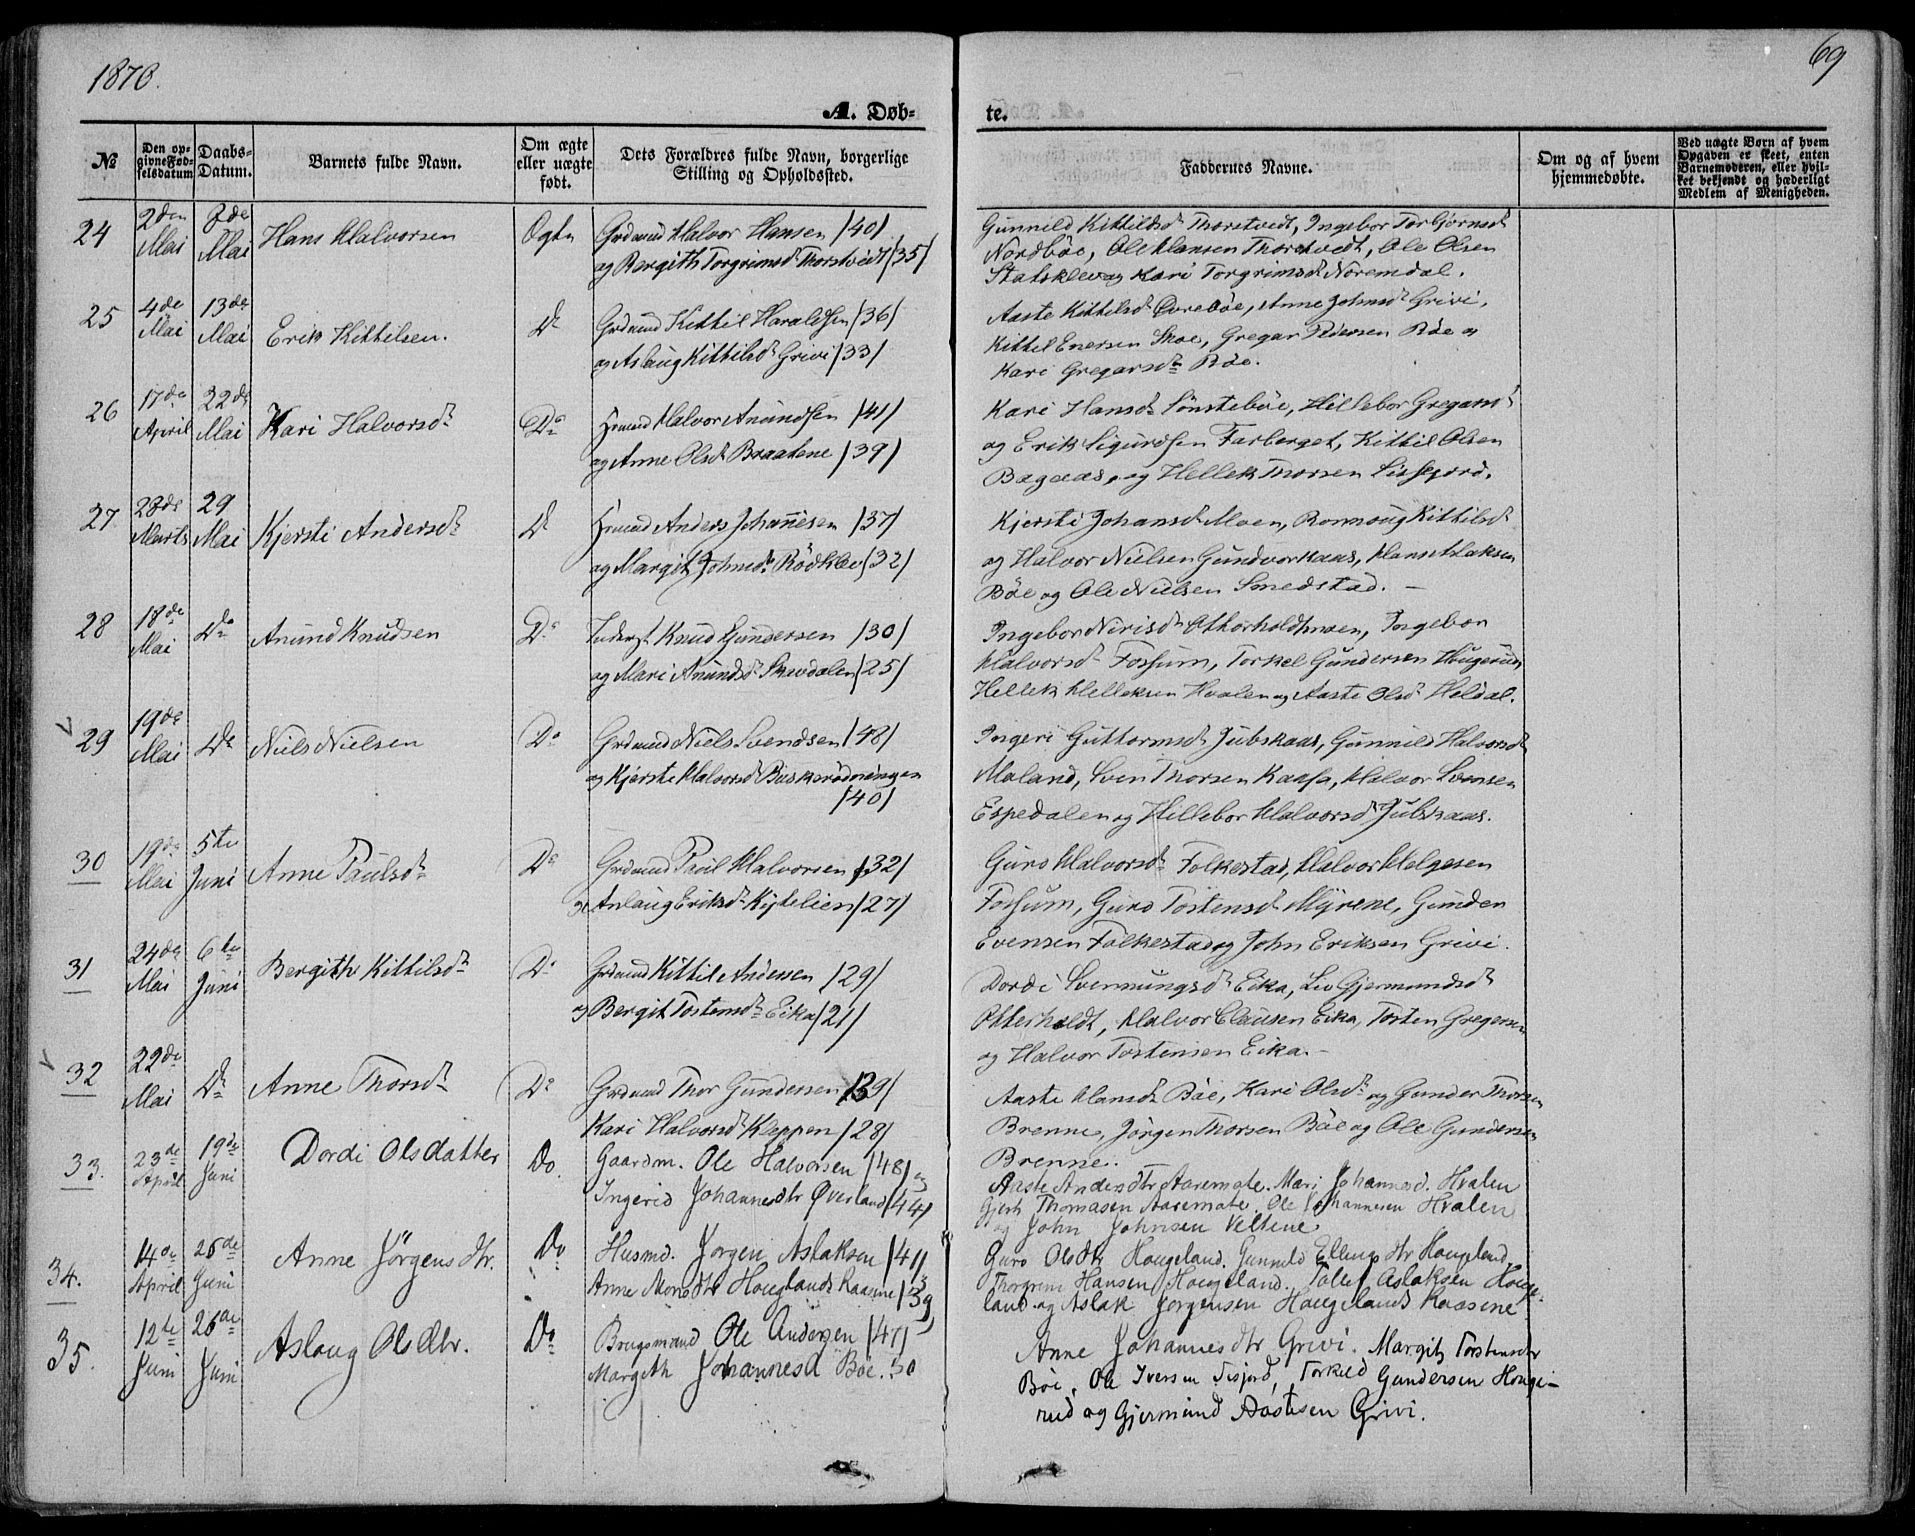 1870.
69
A. Døb-
te.
No
Den op-
givne Fød-
selsdatum
Daabs-
Datum.
Barnets fulde Navn.
Om ægte
eller uægte
født.
Dets Forældres fulde Navn, borgerlige
Stilling og Opholdssted.
Faddernes Navne.
Om og af hvem
hjemmedøbte.
Ved uægte Børn af hvem
Opgaven er skeet, enten
Barnemoderen, eller hvil-
ket bekjendt og hæderligt
Medlem af Menigheden.
24 2den Mai 8de Mai Hans Halvorsen Halvor Hansen /40/
og Bergith Torgrimsd Thorstvedt /35/
Gunnild Kittilsd Thorstvedt, Ingebor Torbjørnsd
Nordbøe, Ole Hansen Thorstvedt, Ole Olsen
Statsklev og Kari Torgrimsd Noremdal.
25 4de Mai 13de Mai Erik Kittelsen. Do Grdmnd Kittil Haraldsen /36/
og Aslaug Kittilsd Grivi /33/
Aaste Kittilsd Övrebøe, Anne Johnsd Grivi,
Kittel Enersen Skoe, Gregar Bøe og
Kari Gregarsd Bøe.
26 17de April 22de Mai Kari Halvorsd Do Halvor Anundsen /41/
og Anne Olsd Braatene /39/
Kari Hansd Sønstebøe, Hillebor Gregarsd
og Erik Sigurdsen Farberget, Kittil Olsen
Bagaas, og Hellek Thorsen
27 28de Marts 29 Mai Kjersti Andersd Do Anders Johannesen /37/
og Margit Johnsd Rödklev /32/
Kjersti Johansd Moen, Ronnoug Kittilsd
og Halvor Nielsen Gundvorkaas, Hans Aslaksen
Bøe og Ole Nielsen Smedstad. —
28 18de Mai Do Anund Knudsen Do Inderst Knud Gundersen /30/
og Mari Anundsd Skavdalen /25/
Ingebor Otterholdt, Ingebor
Halvorsd Fossum, Torkel Gundersen Hougerud
Hellek Helleksen Hvalen og Aaste Olsd Heldal.
29 19de Mai Do Niels Nielsen Do Grdmnd Niels Svendsen /48/
og Kjerste Halvorsd Buskerødningen
/40/
Ingeri Guttormsd Jubskaas, Gunnild Halvorsd
Moland, Sven Thorsen Kaasa, Halvor Svensen
Espedalen og Hillebor Halvorsd Jubskaas.
30 19de Mai 5te Juni Anne Paulsd Do Grdmnd Poul Halvorsen /32/
og Anlaug Eriksd Kistelien /27/
Guro Halvorsd Folkestad, Halvor Helgesen
Fossum, Guro Tostensd Myrene, Gunder
Evensen Folkestad og John Eriksen Grivi.
31 24de Mai 6te Juni Bergith Kittilsd Do Grdmnd Kittil Andersen /29/
og Bergit Tostensd Eika /21/
Dordi Svennungsd Eika, Liv Gjermundsd
Otterholdt, Halvor Clausen Eika, Tosten Gregersen
og Halvor Tostensen Eika. —
32 22de Mai Do Anne Thorsd Do Grdmnd Thor Gundersen /39/
Kari Halvorsd Kleppen /28/
Aaste Hansd Bøe, Kari Olsd og Gunder Thorsen
Brenne, Jörgen Thorsen Bøe og Ole Gundersen
Brenne.
33. 23de April 19de Juni Dordi Olsdatter Do. Gaardm. Ole Halvorsen /48/ og
Ingerid Johannesdtr Øverland /44/
Aaste Andersdtr Aaremote. Mari Johannesd. Hvalen
Gjert Thomasen Aaremote. Ole Johannesen Hvalen
og John Johnsen Veltene
34. 14de April 26de Juni Anne Jörgensdtr. Do Husmd. Jorgen Aslaksen /41/
Anne Monsdtr Hougelands Kaasine /39/
Guro Olsdtr Hougeland. Gunnild Ellingsdtr Hougeland,
Thorgrim Hansen Hougeland. Tollef Aslaksen Houge-
land og Aslak Jorgensen Hougelands Kaasene
35. 12te Juni 26de Juni Aslaug Olsdtr. Do Brugsmand Ole Andersen /47/
Margith Johannesd Bøe. 30
Anne Johannesdtr Grivi. Margit Torstensdtr
Bøe, Ole Iversen Tisjord, Torkild Gundersen Houge-
rud og Gjermund Aastesen Grivi.